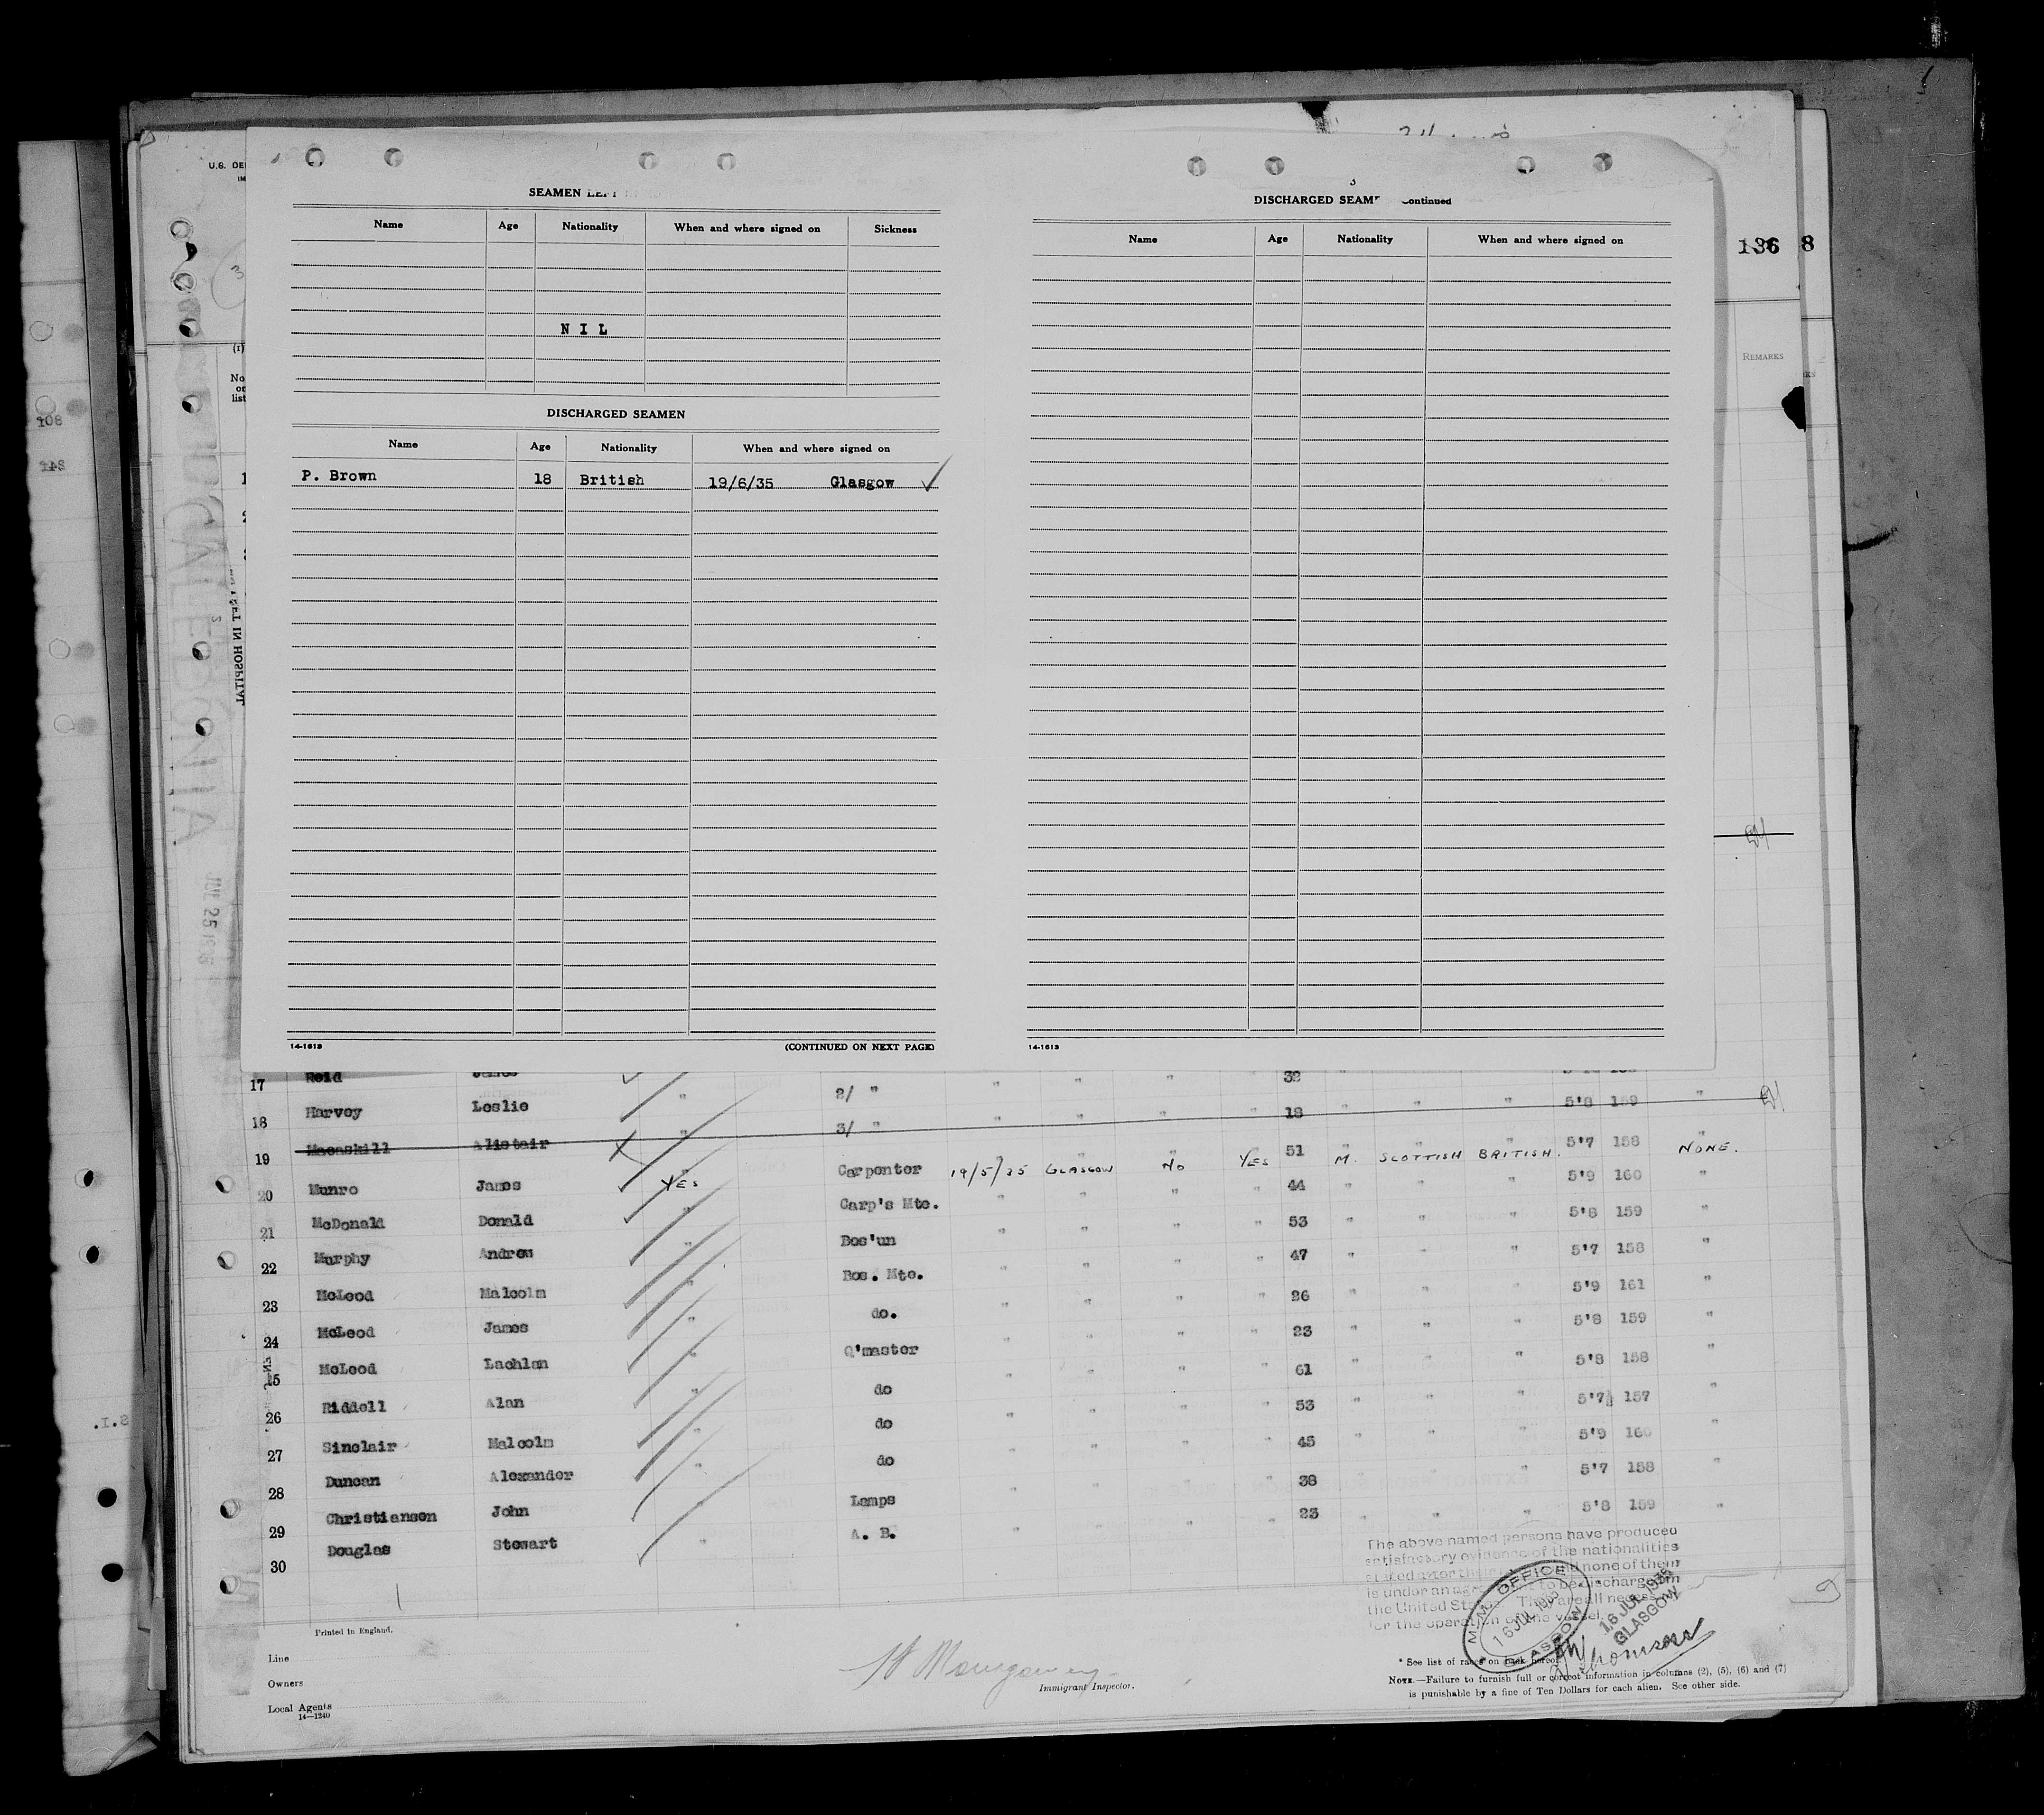 U.S. DE
IM
SEAMEN LEFT
Name Age Nationality When and where signed on Sickness
NIL
DISCHARGED SEAMEN
Name Age Nationality When and where signed on
P. Brown 18 British 19/6/35 Glasgow ✓
14-1613 (CONTINUED ON NEXT PAGE)
DISCHARGED SEAM Continued
Name Age Nationality When and where signed on
14-1613
136 8
REMARKS
(1)
No
on
list
108
148
CALEDONIA
JUL 25
LEFT IN HOSPITAL
S.I.
17 Reid James 2/ " " " " 32
18 Harvey Leslie " 3/ " " " " " 18 " " " 5'8 159 "
19 Macaskill Alistair " 51 " " 5'7 158 "
20 Munro James YES Carpenter 19/5/35 GLASGOW NO YES 44 M. SCOTTISH BRITISH. 5'9 160 NONE.
21 McDonald Donald " Carp's Mte. " " " " 53 " " " 5'8 159 "
22 Murphy Andrew " Bos'un " " " " 47 " " " 5'7 158 "
23 McLeod Malcolm " Bos. Mte. " " " " 26 " " " 5'9 161 "
24 McLeod James " do. " " " " 23 " " " 5'8 159 "
25 McLeod Lachlan " Q'master " " " " 61 " " " 5'8 158 "
26 Riddell Alan " do " " " " 53 " " " 5'7½ 157 "
27 Sinclair Malcolm " do " " " " 45 " " " 5'9 160 "
28 Duncan Alexander " do " " " " 38 " " " 5'7 158 "
29 Christianson John " Lamps " " " " 23 " " " 5'8 159 "
30 Douglas Stewart " A. B. " " " "
The above named persons have produced
satisfactory evidence of the nationalities
stated after their and none of them
is under an agr to be discharged in
the United States. They are all necess
for the operation of the vessel.
M.M. OFFICE
16 JUL 1935
GLASGOW
16 JUL 1935
GLASGOW
Thomson
Printed in England.
Line
Owners
Local Agents
14—1240
Immigrant Inspector.
* See list of races on back hereof.
NOTE.—Failure to furnish full or correct information in columns (2), (5), (6) and (7)
is punishable by a fine of Ten Dollars for each alien. See other side.